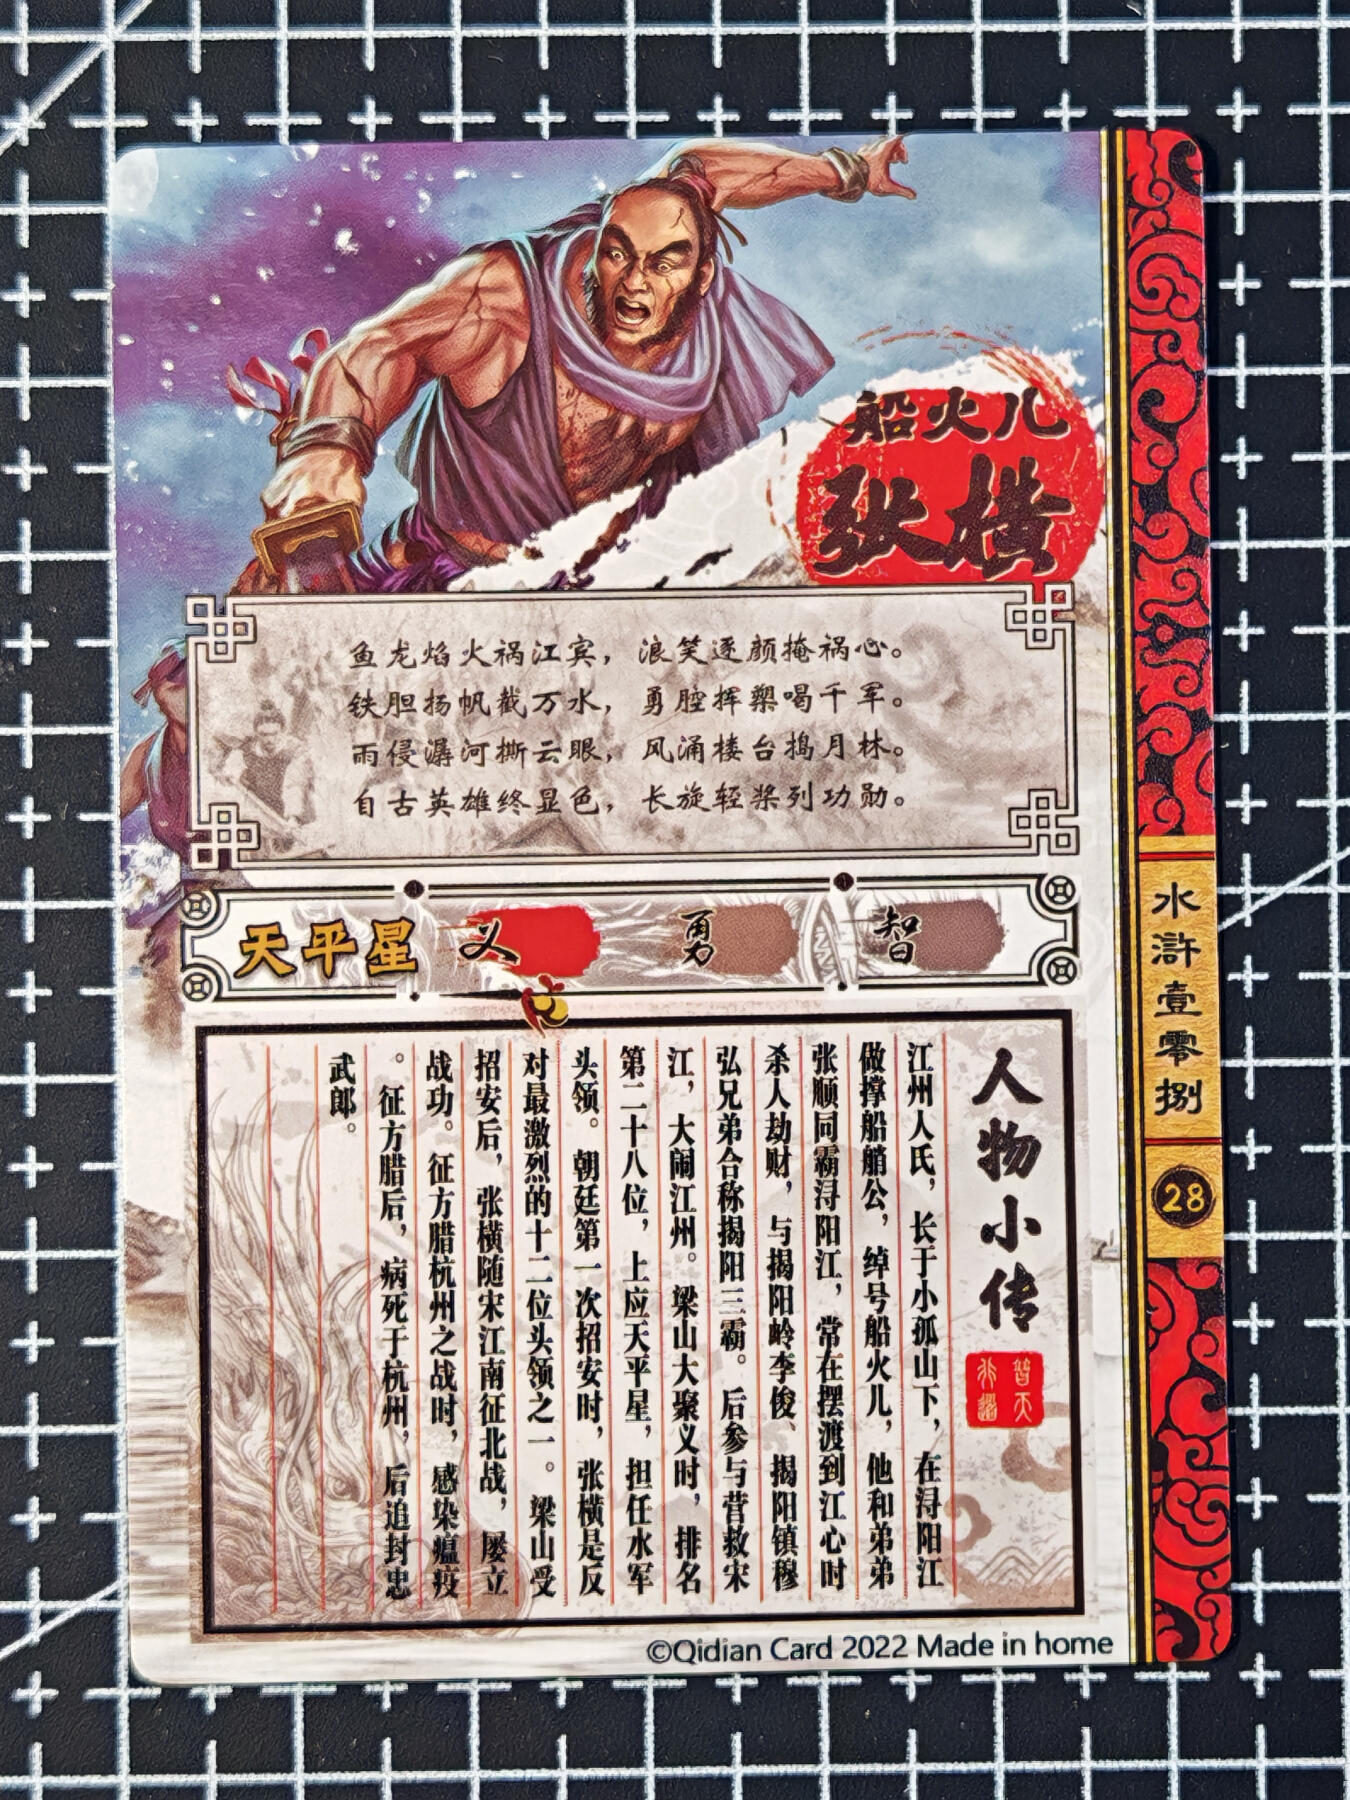 船火儿
张横
鱼龙焰火祸江宾，浪笑逐颜掩祸心。
铁胆扬帆截万水，勇腔挥槊喝千军。
雨侵潺河撕云眼，风涌楼台捣月林。
自古英雄终显色，长旋轻桨列功勋。
天平星 义 勇 智
人物小传
替天
行道
江州人氏，长于小孤山下，在浔阳江
做撑船艄公，绰号船火儿，他和弟弟
张顺同霸浔阳江，常在摆渡到江心时
杀人劫财，与揭阳岭李俊、揭阳镇穆
弘兄弟合称揭阳三霸。后参与营救宋
江，大闹江州。梁山大聚义时，排名
第二十八位，上应天平星，担任水军
头领。朝廷第一次招安时，张横是反
对最激烈的十二位头领之一。梁山受
招安后，张横随宋江南征北战，屡立
战功。征方腊杭州之战时，感染瘟疫
。征方腊后，病死于杭州，后追封忠
武郎。
水浒壹零捌
28
©Qidian Card 2022 Made in home